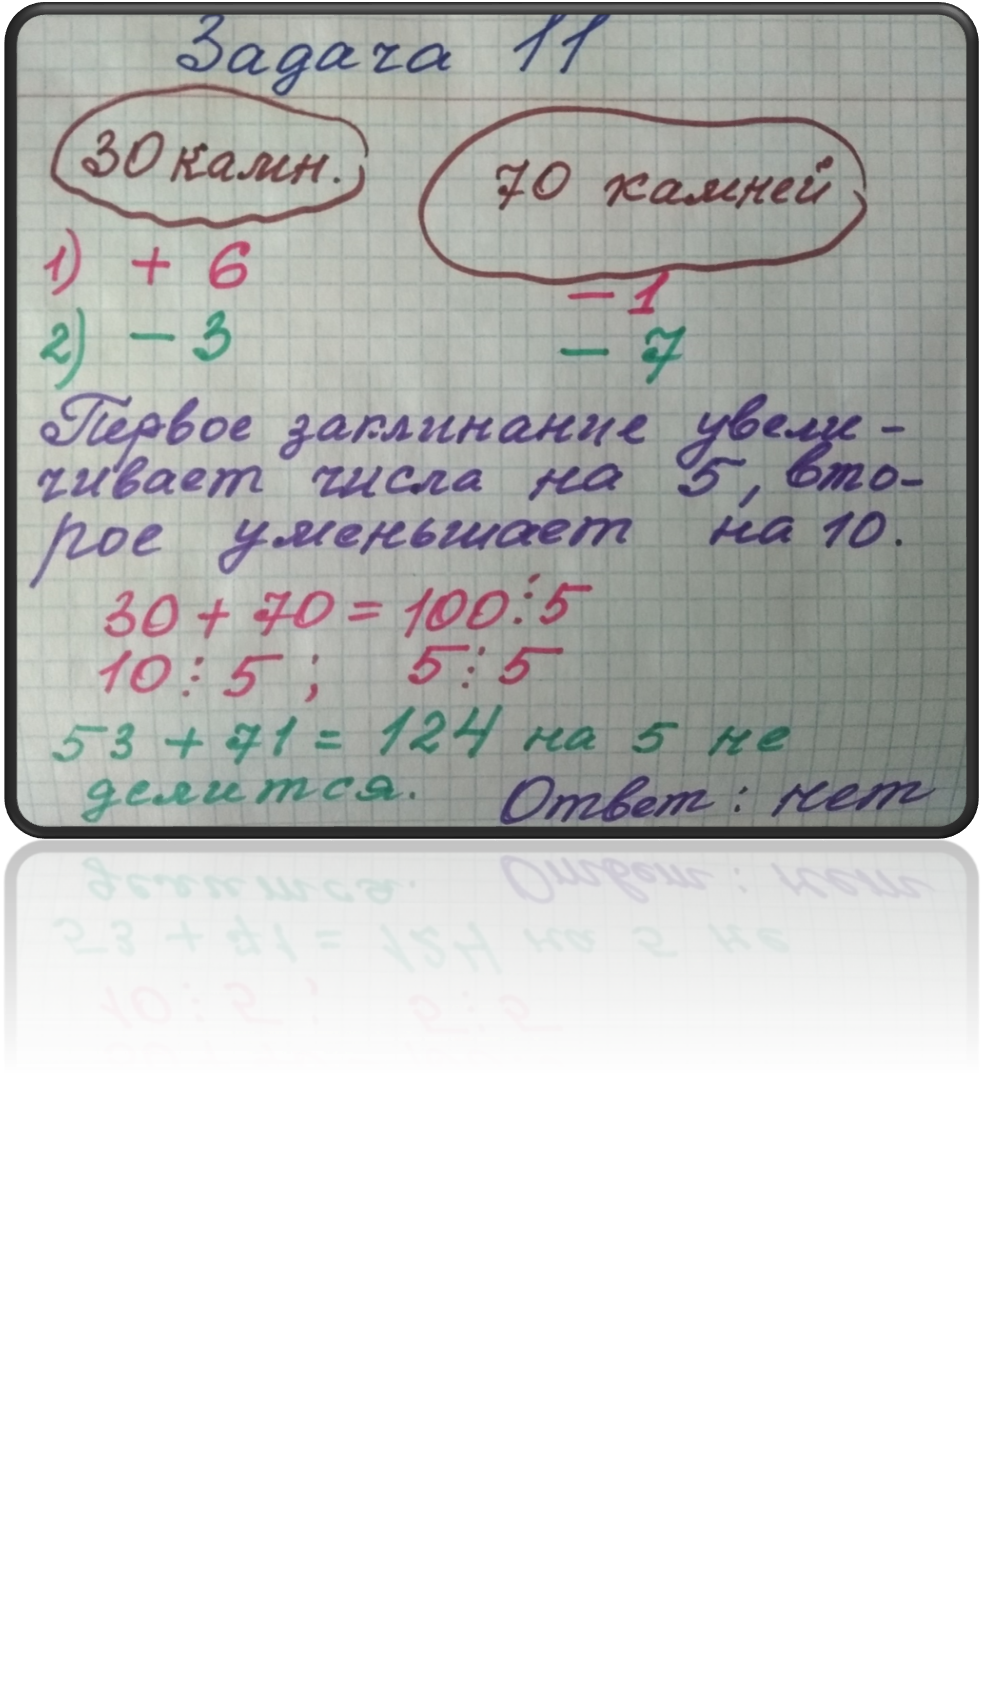 Задача 11
30 камн. 70 камней
1) + 6 - 1
2) - 3 - 7
Первое заклинание увели-
чивает числа на 5, вто-
рое уменьшает на 10.
30 + 70 = 100⋮5
10⋮5 ; 5⋮5
53 + 71 = 124 на 5 не
делится. Ответ: нет